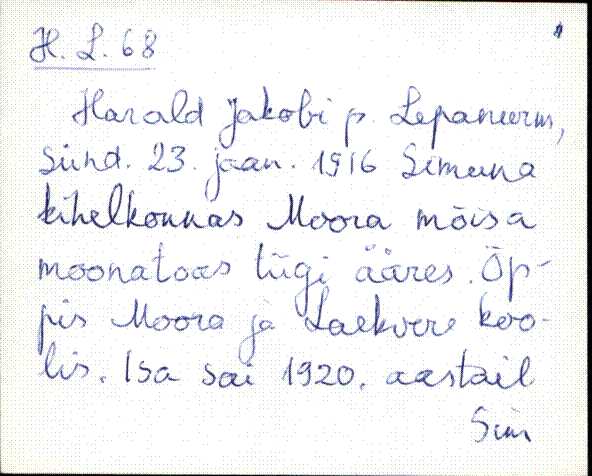 H. L. 68
Harald Jakobi p. Lepanurm,
sünd. 23. jaan. 1916 Simuna
kihelkonnas Moora mõisa
moonatoas tiigi ääres. Õp-
pis Moora ja Laekvere koo-
lis. Isa sai 1920. aastail
Sim